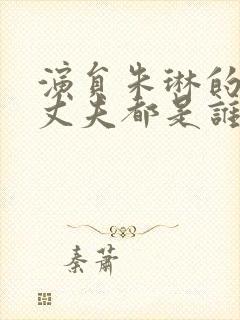 演員朱琳的
丈夫都是誰
秦蕭